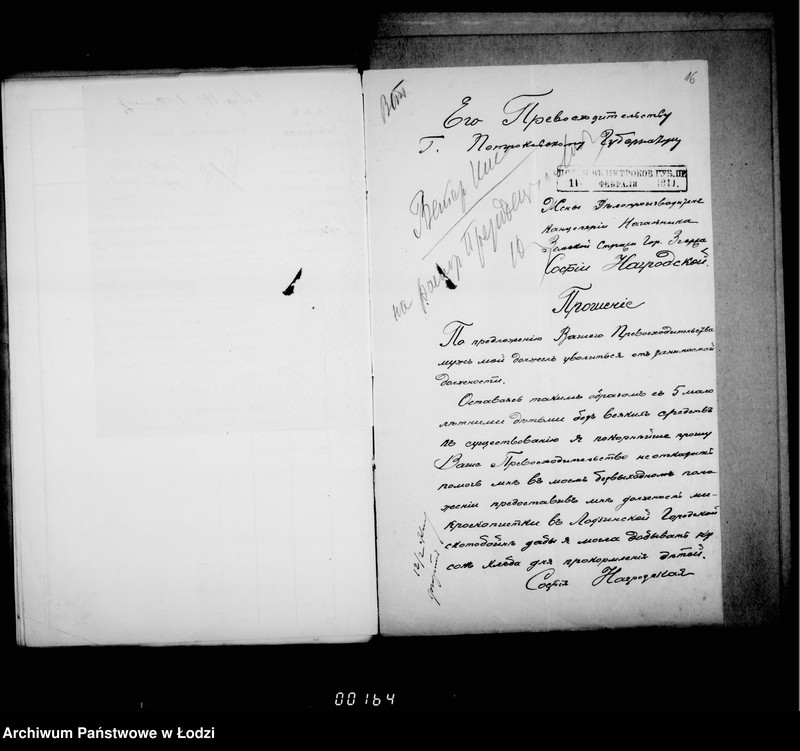 16
Его Превосходительству
Г. Петроковскому Губернатору
ПОЛУЧ. ВЪ ПЕТРОКОВ. ГУБ. ПР.
11 ФЕВРАЛЯ 1911.
Жены Дѣлопроизводителя
Канцеляріи Начальника
Земской Стражи Гор. Згержа
Софіи Нагродской.
Прошеніе
По предложенію Вашего Превосходительства
мужъ мой долженъ уволиться отъ занимаемой
должности.
Оставаясь такимъ образомъ съ 5 мало
лѣтними дѣтьми безъ всякихъ средствъ
къ существованію я покорнѣйше прошу
Ваше Превосходительство не отказать
помочь мнѣ въ моемъ безвыходномъ поло
женіи предоставивъ мнѣ должность ми-
кроскопистки въ Лодзинской Городской
скотобойнѣ дабы я могла добывать ку
сокъ хлѣба для прокормленія дѣтей.
Софія Нагродская
00164
Archiwum Państwowe w Łodzi